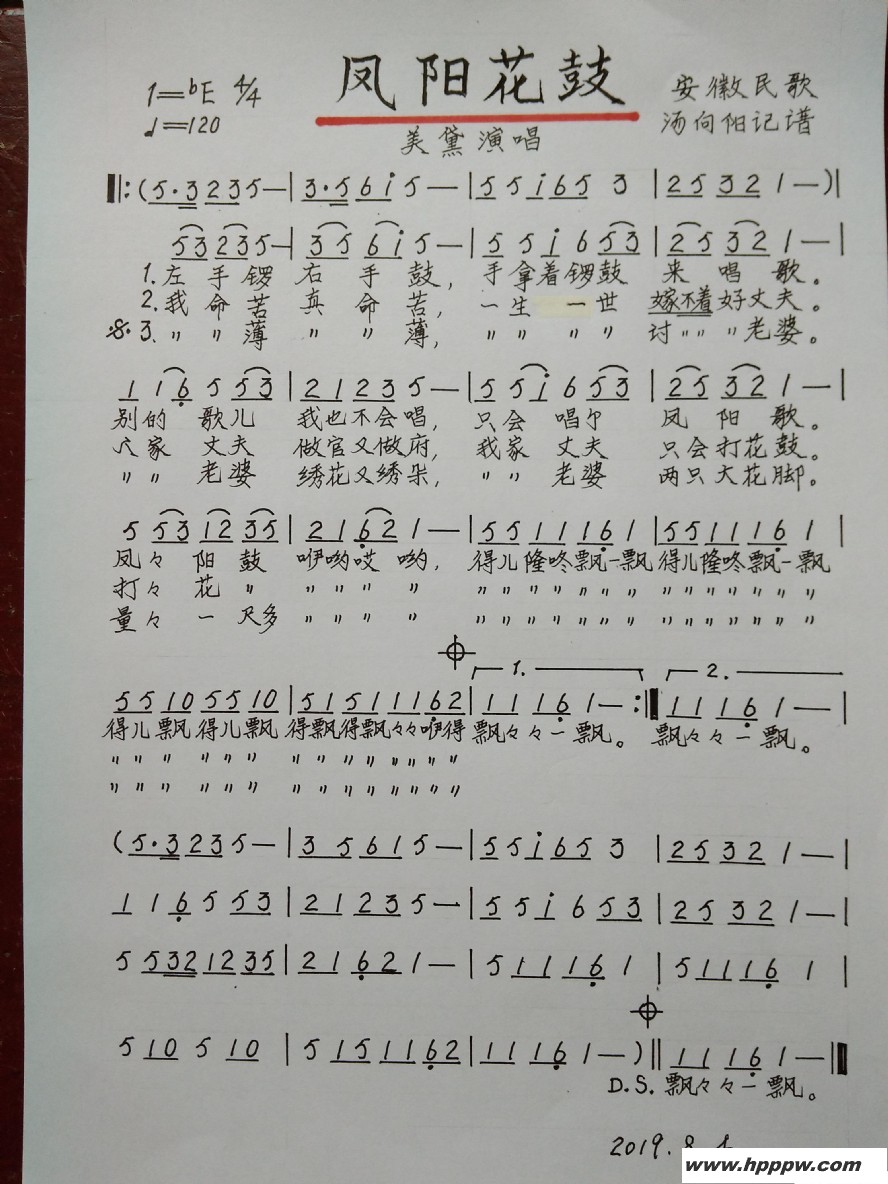 凤阳花鼓
1=bE 4/4
安徽民歌
♩=120
汤向阳记谱
美黛演唱
‖:(5·3 2 3 5 —|3·5 6 i 5 —|5 5 i 6 5 3|2 5 3 2 1 —)|
5 3 2 3 5 —|3 5 6 i 5 —|5 5 i 6 5 3|2 5 3 2 1 —|
1.左手锣 右手鼓,手拿着锣鼓 来唱歌。
2.我命苦 真命苦,一生一世 嫁不着好丈夫。
3、〃〃薄 〃〃薄,〃〃〃〃 讨〃〃〃老婆。
1 1 6 5 5 3|2 1 2 3 5 —|5 5 i 6 5 3|2 5 3 2 1 —|
别的歌儿 我也不会唱,只会唱 凤阳歌。
家丈夫 做官又做府,我家丈夫 只会打花鼓。
〃〃老婆 绣花又绣朵,〃〃老婆 两只大花脚。
5 5 3 1 2 3 5|2 1 6 2 1 —|5 5 1 1 1 6 1|5 5 1 1 1 6 1|
凤々阳鼓 咿哟哎哟,得儿隆咚飘一飘 得儿隆咚飘一飘
打々花〃 〃〃〃〃 〃〃〃〃〃〃〃 〃〃〃〃〃〃〃
量々一尺多 〃〃〃〃 〃〃〃〃〃〃〃 〃〃〃〃〃〃〃
1. 2.
5 5 1 0 5 5 1 0|5 1 5 1 1 1 6 2|1 1 1 6 1 —:‖1 1 1 6 1 —|
得儿飘 得儿飘 得飘得飘々々咿得 飘々々一飘。 飘々々一飘。
〃〃〃 〃〃〃 〃〃〃〃〃〃〃〃
〃〃〃 〃〃〃 〃〃〃〃〃〃〃〃
(5·3 2 3 5 —|3 5 6 1 5 —|5 5 i 6 5 3|2 5 3 2 1 —|
1 1 6 5 5 3|2 1 2 3 5 —|5 5 i 6 5 3|2 5 3 2 1 —|
5 5 3 2 1 2 3 5|2 1 6 2 1 —|5 1 1 1 6 1|5 1 1 1 6 1|
5 1 0 5 1 0|5 1 5 1 1 6 2|1 1 1 6 1 —)‖1 1 1 6 1 —‖
D.S. 飘々々一飘。
2019.8.
www.hpppw.com